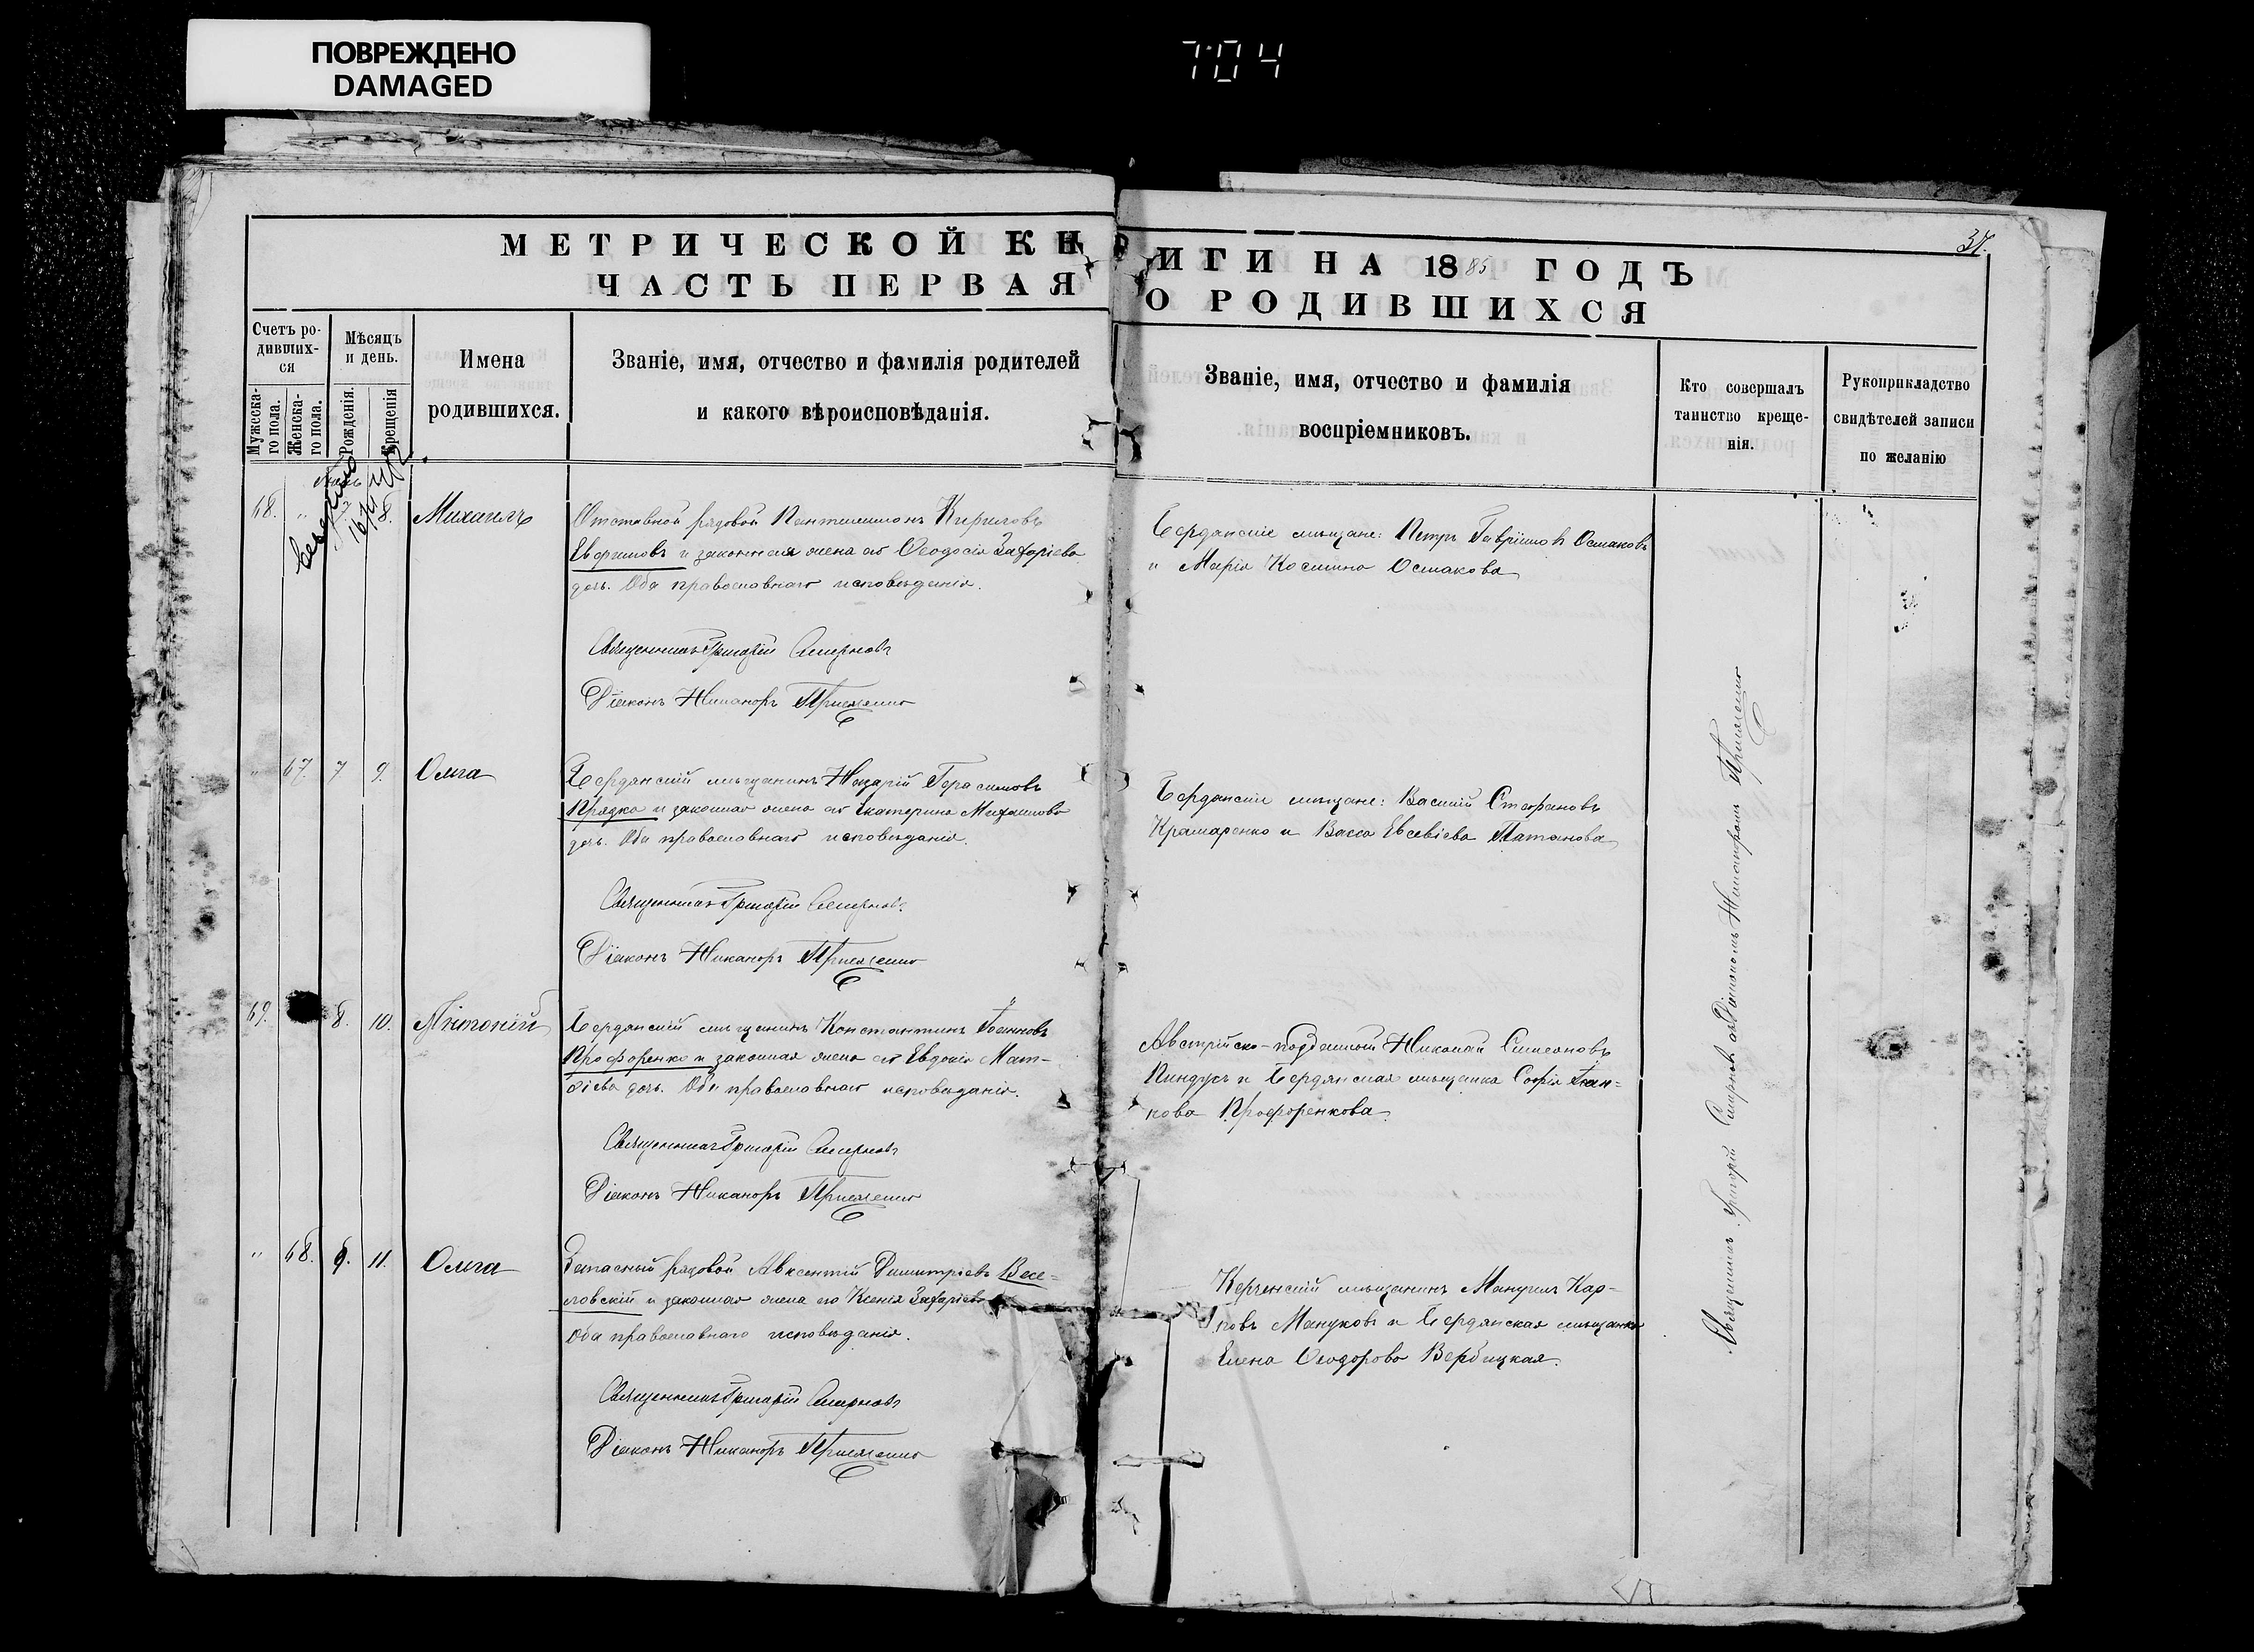 ПОВРЕЖДЕНО
DAMAGED
704
37.
МЕТРИЧЕСКОЙ КНИГИ НА 1885 ГОДЪ
ЧАСТЬ ПЕРВАЯ О РОДИВШИХСЯ
Счетъ ро-
дивших-
ся
Мужеска-
го пола.
Женска-
го пола.
Мѣсяцъ
и день.
Рожденія.
Крещенія
Имена
родившихся.
Званіе, имя, отчество и фамилія родителей
и какого вѣроисповѣданія.
Званіе, имя, отчество и фамилія
воспріемниковъ.
Кто совершалъ
таинство креще-
нія.
Рукоприкладство
свидѣтелей записи
по желанію
68. " 8. Михаилъ
Отставной рядовой Пантелимонъ Кириловъ
и законная жена его Ѳеодосія Захаріева
дочь. Оба православнаго исповѣданія.
Священникъ Григорій Смирновъ
Діаконъ Никаноръ
Бердянскіе мѣщане: Петръ Гавріиловъ Осмаковъ
и Марія Космина Осмакова
" 67. 7 9. Ольга
Бердянскій мѣщанинъ Назарій Герасимовъ
Прядко и законная жена его Екатерина Михаилова
дочь. Оба православнаго исповѣданія.
Священникъ Григорій Смирновъ.
Діаконъ Никаноръ
Бердянскіе мѣщане: Василій Стефановъ
Крамаренко и Васса Евсевіева Патанова
69. 8. 10. Антоній
Бердянскій мѣщанинъ Константинъ Іоанновъ
Профоренко и законная жена его Евдокія Мат-
ѳіева дочь. Оба православнаго исповѣданія.
Священникъ Григорій Смирновъ
Діаконъ Никаноръ
Австрійско-подданный Николай Симеоновъ
Пиндусъ и Бердянская мѣщанка Софія Іоан-
нова Профоренкова
" 68. 9. 11. Ольга
Запасный рядовой Авксентій Димитріевъ Весе-
ловскій и законная жена его Ксенія Захаріева
Оба православнаго исповѣданія.
Священникъ Григорій Смирновъ
Діаконъ Никаноръ
Керченскій мѣщанинъ Мануилъ Кар-
повъ Мануковъ и Бердянская мѣщанка
Елена Ѳеодорова Вербицкая.
Священникъ Григорій Смирновъ съ Діакономъ Никаноромъ